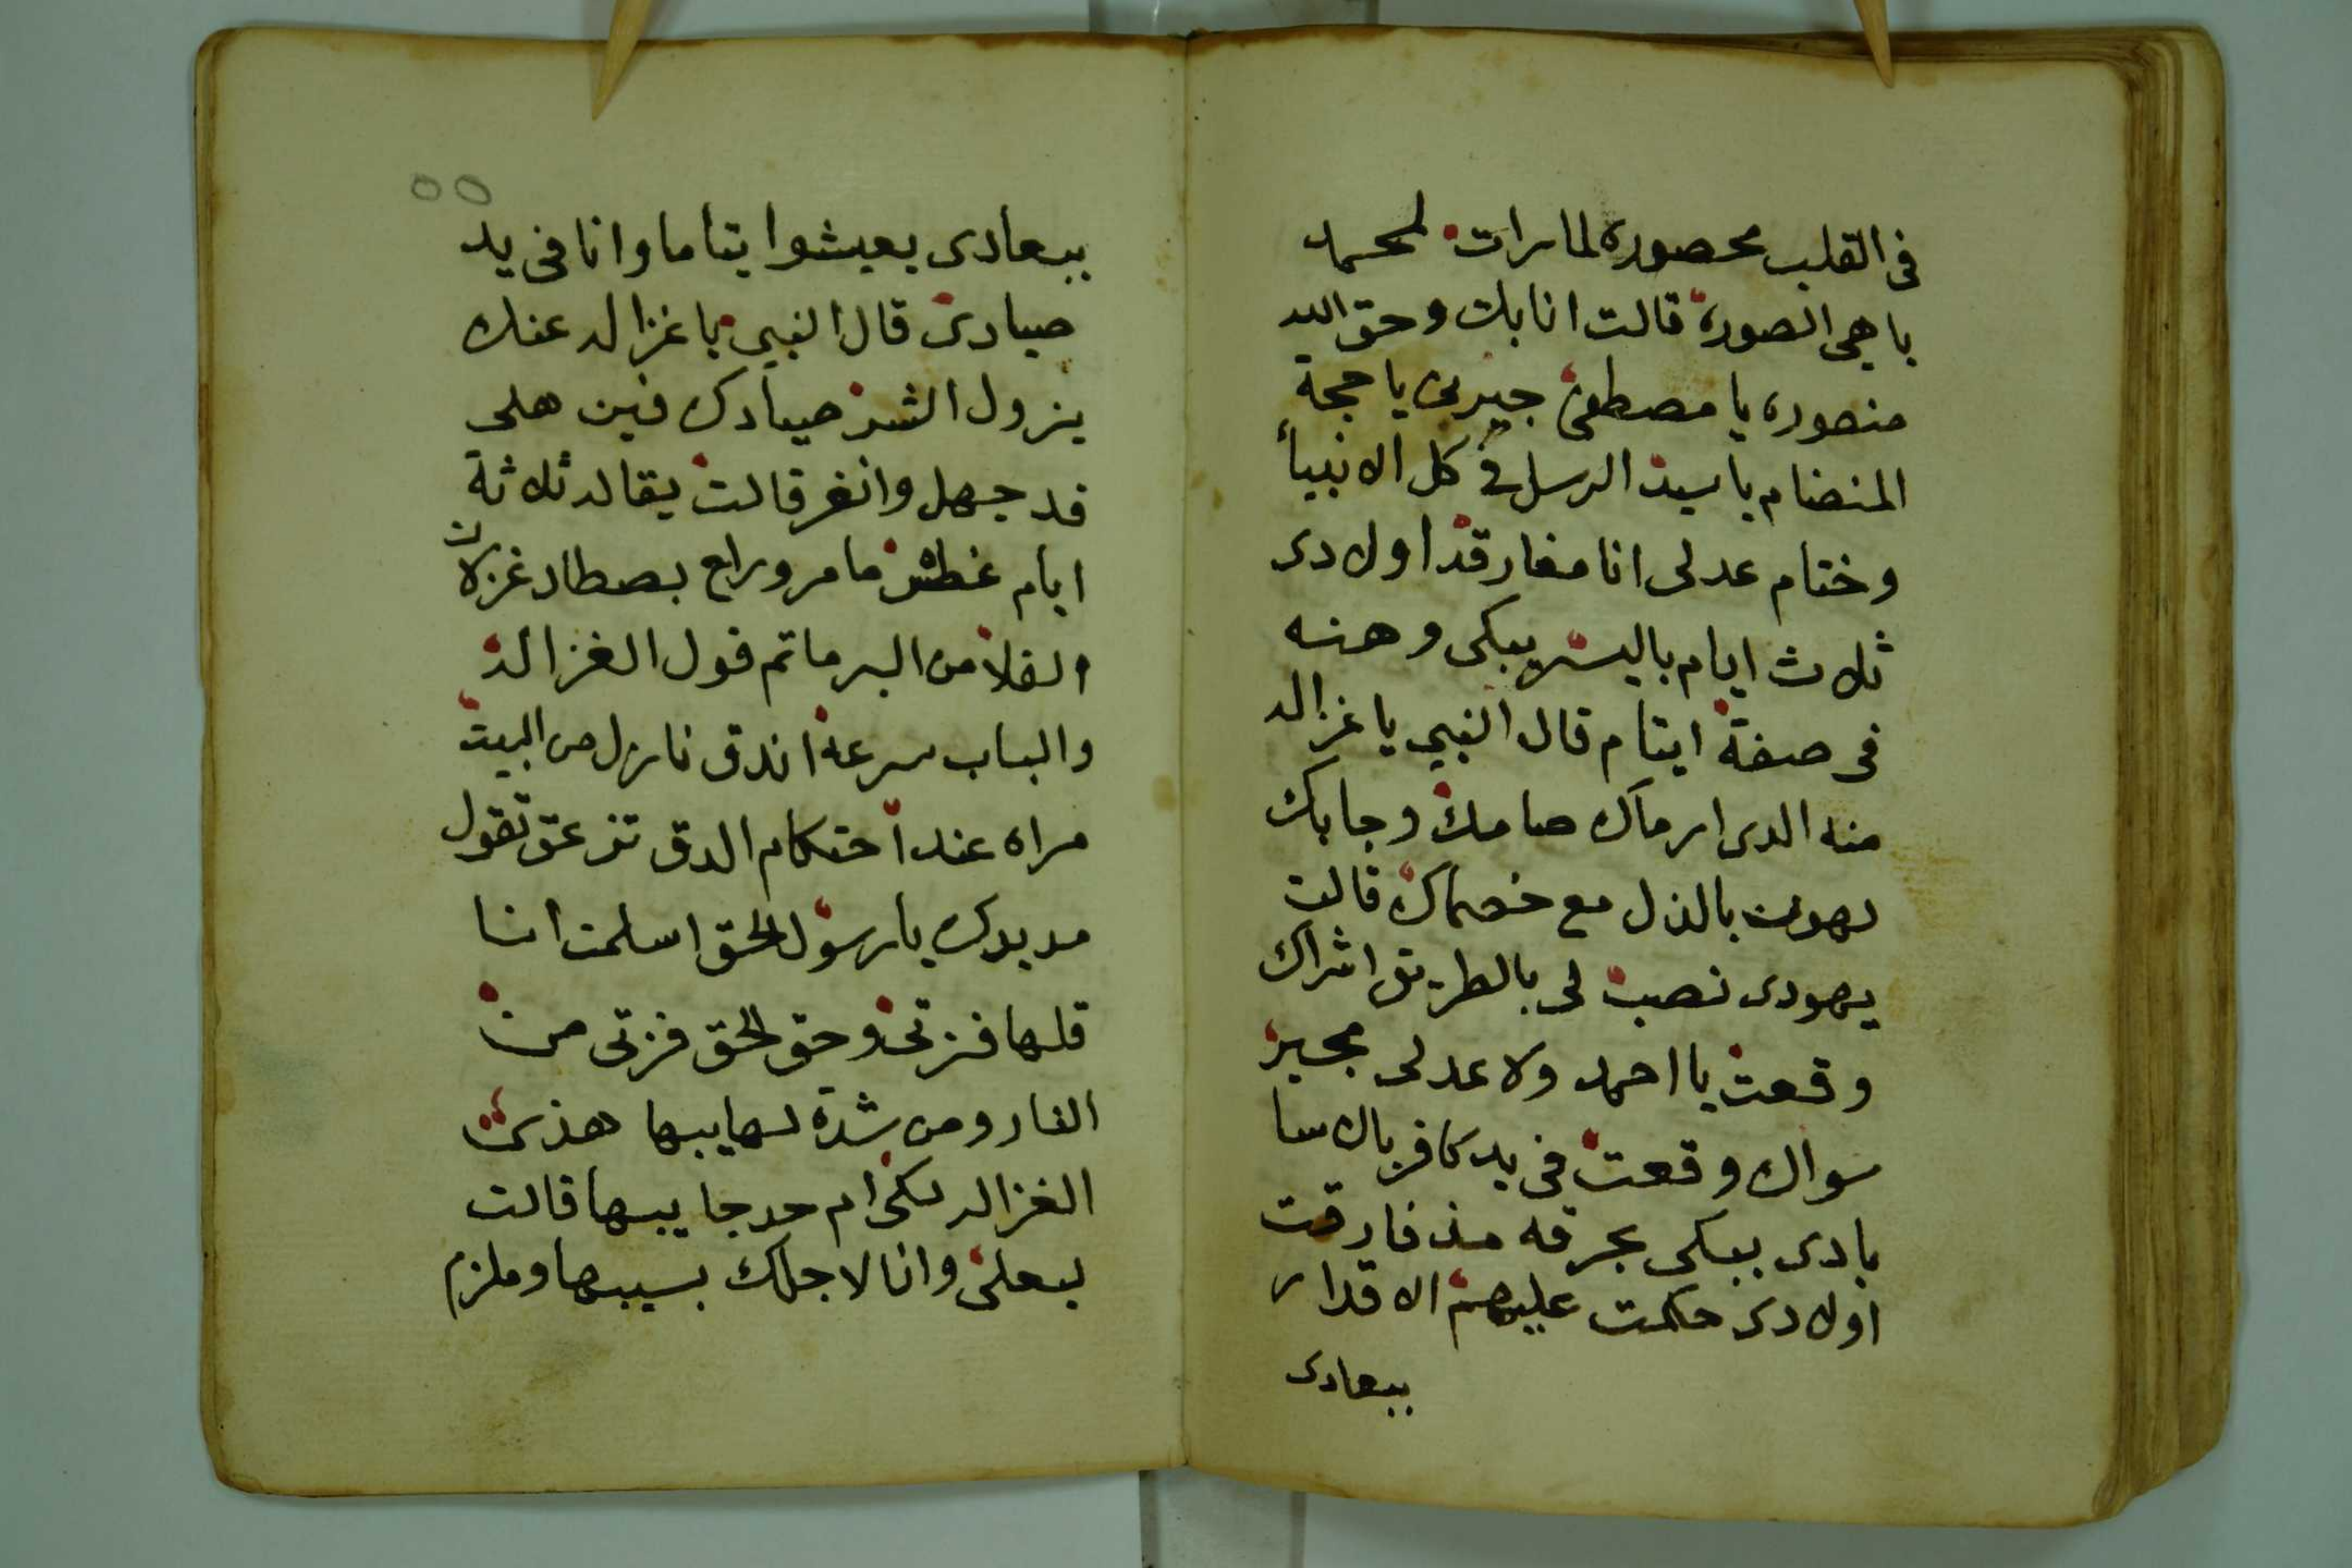 فى القلب محصوره لما رات لمحمد
باهي الصوره قالت انا بك وحق اليد
منصوره يا مصطفى جيرنى يا حجة
المنضام يا سيد الرسل فى كل الانبيأ
وختام عدلى انا مفارقه اولادى
ثلاث ايام باليسر يبكى وهنه
فى صفة ايتام قال النبي يا غزاله
منه الدى ارماك صامك وجابك
بالذل مع خصماك قالت
يهودى نصب لى بالطريق اشراك
وقعت يا احمد ولا عدلى مجير
سواك وقعت فى يد كافر بالاسا
بادى يبكى بحرقه مذ فارقت
اولادى حكمت عليهم الاقدار
ببعادى
٥٥
ببعادى يعيشوا يتاما وانا فى يد
صيادى قال النبي يا غزاله عنك
يزول الشر صيادك فين هلى
قد جهل وانغر قالت يقاله ثلاثة
ايام غطش ما مر ورايح بصطاد غزلان
الفلا من البر ما تم قول الغزاله
والباب سرعة اندق نازل من البيت
مراه عند احتكام الدق تزعق تقول
مد يدك يا رسول الحق اسلمت انا
قلها فزتى وحق الحق فزتى من
النار ومن شدة لهايبها هذى
الغزاله لكى ام حد جايبها قالت
لبعلى وانا لاجلك بسيبها وملزم